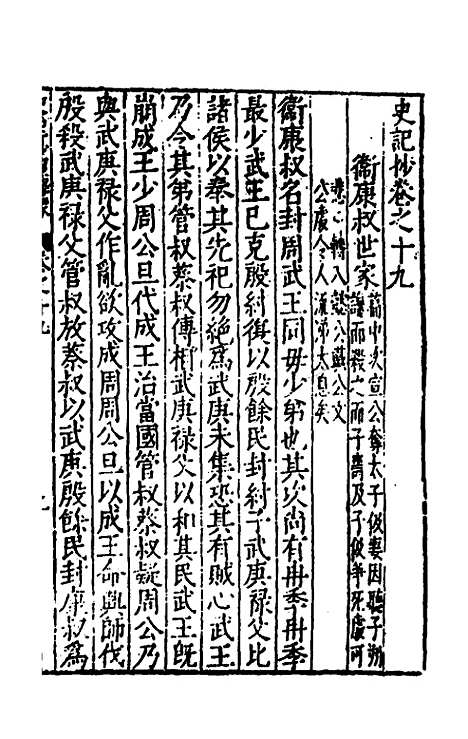 史記抄卷之十九
衞康叔世家
篇中次宣公奪太子伋妻因聽子朔
讒而殺之而子壽及子伋爭死處可
悲心轉入懿公戴公文
公處令人流涕太息矣
衞康叔名封周武王同母少弟也其次尚有冉季冉季
最少武王已克殷紂復以殷餘民封紂子武庚祿父比
諸侯以奉其先祀勿絶爲武庚未集恐其有賊心武王
乃令其弟管叔蔡叔傅相武庚祿父以和其民武王旣
崩成王少周公旦代成王治當國管叔蔡叔疑周公乃
與武庚祿父作亂欲攻成周周公旦以成王命興師伐
殷殺武庚祿父管叔放蔡叔以武庚殷餘民封康叔爲
卷之十九